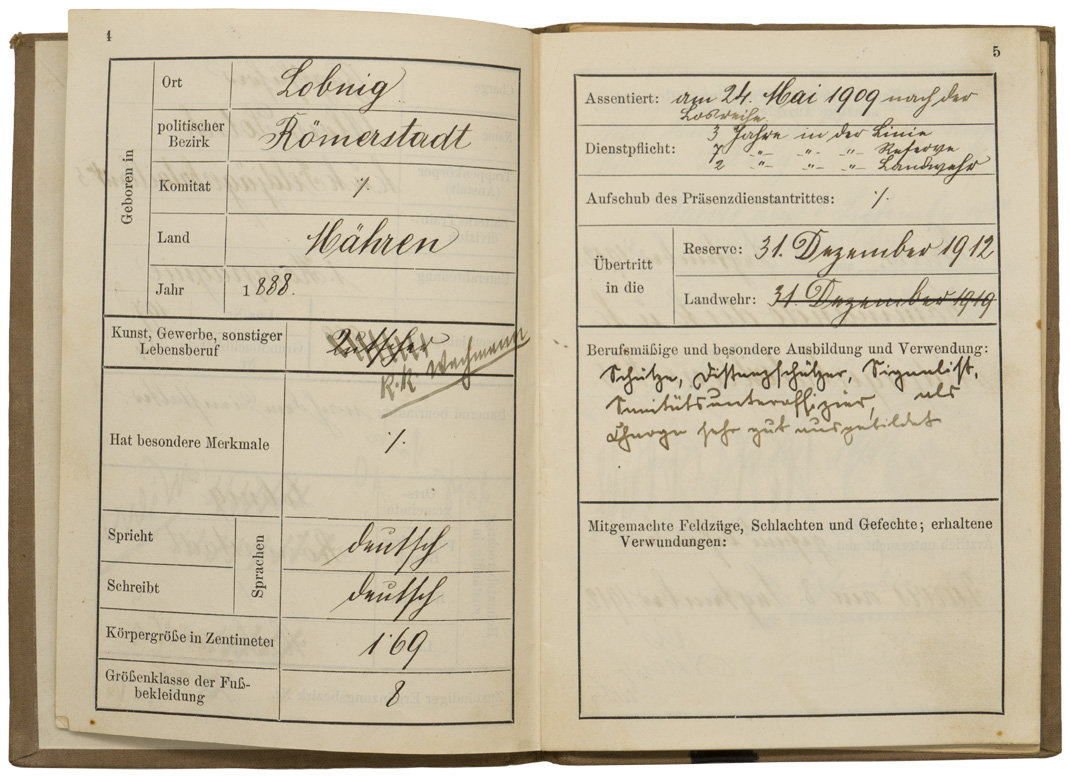 4
Geboren in
Ort Lobnig
politischer Bezirk Römerstadt
Komitat ·/.
Land Mähren
Jahr 1888.
Kunst, Gewerbe, sonstiger
Lebensberuf
K. K. Wachmann
Hat besondere Merkmale ·/.
Sprachen
Spricht deutsch
Schreibt deutsch
Körpergröße in Zentimeter 1·69
Größenklasse der Fuß-
bekleidung 8
5
Assentiert: am 24. Mai 1909 nach der
Losreihe
Dienstpflicht: 3 Jahre in der Linie
7 -"- -"- -"- Reserve
2 -"- -"- -"- Landwehr
Aufschub des Präsenzdienstantrittes: ·/.
Übertritt
in die
Reserve: 31. Dezember 1912
Landwehr: 31. Dezember 1919
Berufsmäßige und besondere Ausbildung und Verwendung:
Schütze, Distanzschätzer, Signalist,
Sanitätsunteroffizier, als
Charge sehr gut ausgebildet
Mitgemachte Feldzüge, Schlachten und Gefechte; erhaltene
Verwundungen: